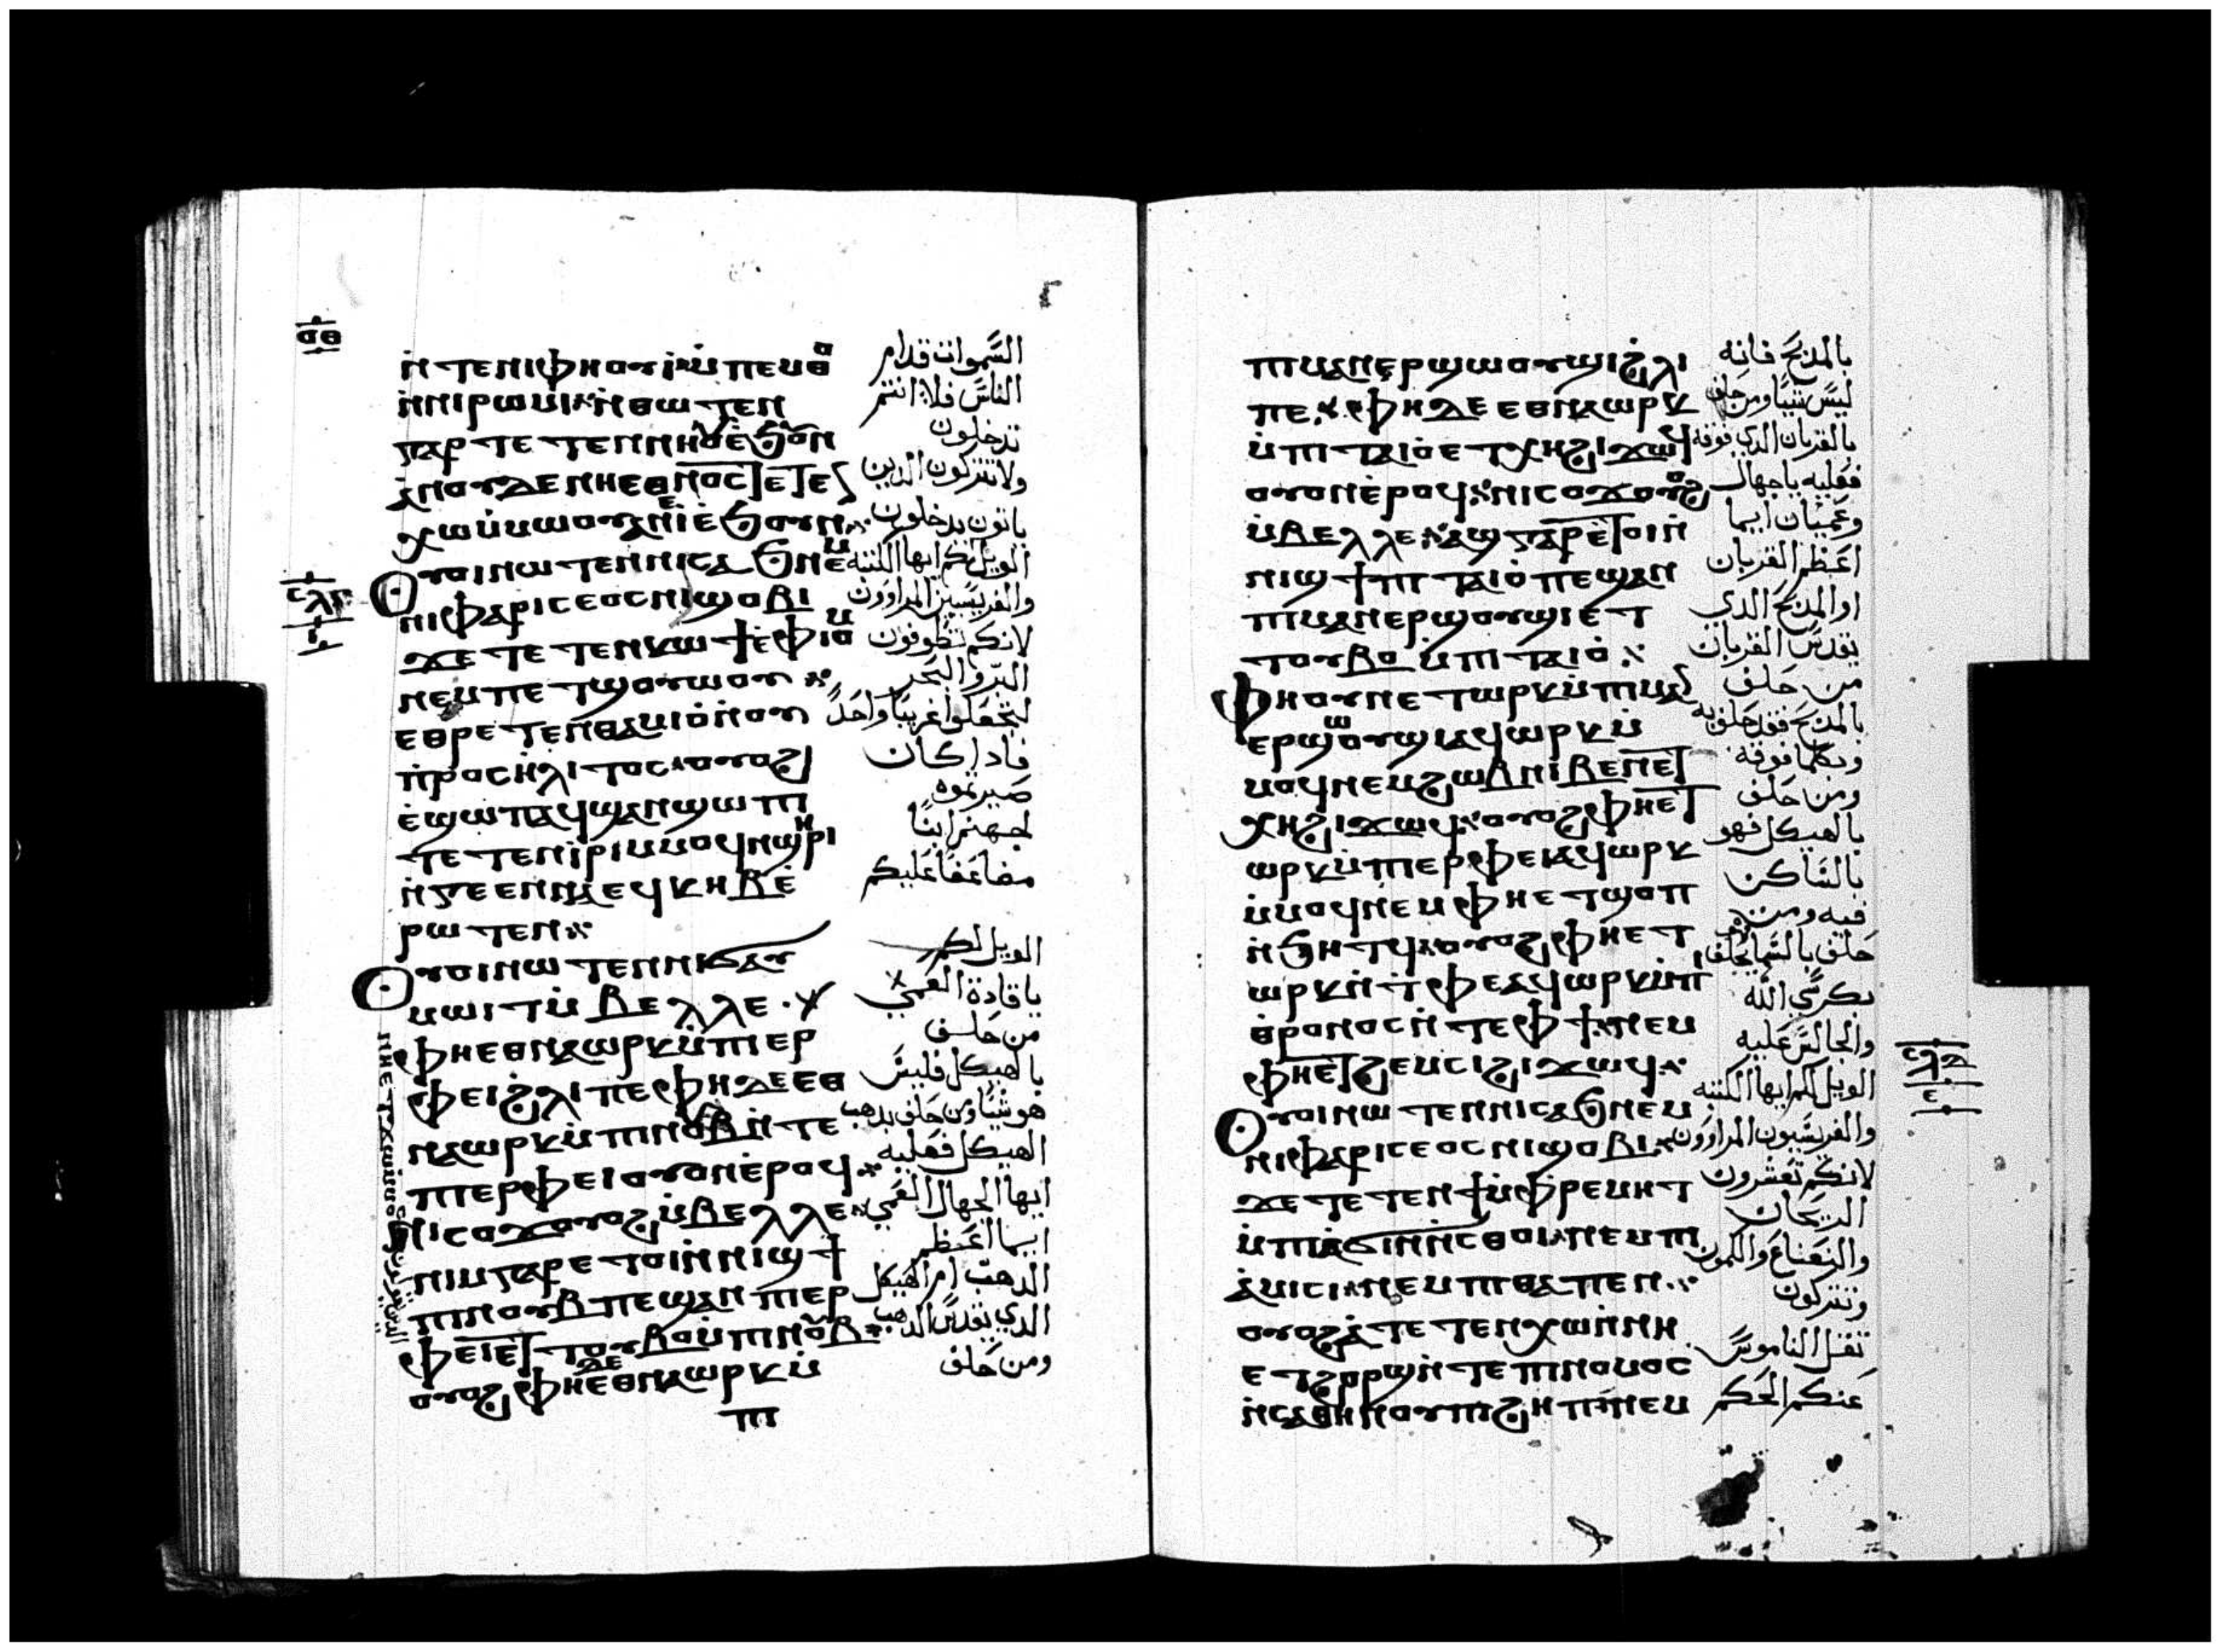 ⲟⲑ
ⲛ̀ⲧⲉⲛⲓⲫⲏⲟⲩⲓ ⲙ̀ⲡⲉⲙⲑⲟ
ⲛ̀ⲛⲓⲣⲱⲙⲓ ⲛ̀ⲑⲱⲧⲉⲛ
ⲅⲁⲣ ⲧⲉⲧⲉⲛⲛⲏⲟⲩ ⲉ̀ϧⲟⲩⲛ
ⲁⲛ ⲟⲩⲇⲉ ⲛⲏⲉⲑⲛⲟⲥ ⲧⲉⲧⲉⲛ
ⲭⲱ ⲙ̀ⲙⲱⲟⲩ ⲁⲛ ⲉ̀ⲓ ⲉ̀ϧⲟⲩⲛ
ⲟⲩⲟⲓ ⲛⲱⲧⲉⲛ ⲛⲓⲥⲁϧ ⲛⲉⲙ
ⲛⲓⲫⲁⲣⲓⲥⲉⲟⲥ ⲛⲓϣⲟⲃⲓ
ϫⲉ ⲧⲉⲧⲉⲛⲕⲱϯ ⲉ̀ⲫⲓⲟⲙ
ⲛⲉⲙ ⲡⲉⲧϣⲟⲩⲱⲟⲩ
ⲉⲑⲣⲉⲧⲉⲛⲑⲁⲙⲓⲟ̀ ⲛ̀ⲟⲩ
ⲡ̀ⲣⲟⲥⲏ̀ⲗⲓⲧⲟⲥ ⲟⲩⲟϩ
ⲉ̀ϣⲱⲡ ⲁϥϣⲁⲛϣⲱⲡⲓ
ⲧⲉⲧⲉⲛⲓ̀ⲣⲓ ⲙⲙⲟϥ ⲛϣⲏⲣⲓ
ⲛ̀ⲅⲉⲉⲛⲛⲁ ⲉϥⲕⲏⲃ ⲉ̀
ⲣⲱⲧⲉⲛ
ⲟⲩⲟⲓ ⲛⲱⲧⲉⲛ ⲛⲓϭⲁⲩ
ⲙⲱⲓⲧ ⲙ̀ⲃⲉⲗⲗⲉ
ⲫⲏⲉⲑⲛⲁⲱⲣⲕ ⲙ̀ⲡⲓⲉⲣ
ⲫⲉⲓ ϩ̀ⲗⲓ ⲡⲉ ⲫⲏ ⲇⲉ ⲉⲑ
ⲛⲁⲱⲣⲕ ⲙ̀ⲡⲓⲛⲟⲩⲃ ⲛ̀ⲧⲉ
ⲡⲓⲉⲣⲫⲉⲓ ⲟⲩⲟⲛ ⲉ̀ⲣⲟϥ
ⲛⲓⲥⲟϫ ⲟⲩⲟϩ ⲙ̀ⲃⲉⲗⲗⲉ
ⲛⲓⲙ ⲅⲁⲣ ⲉⲧⲟⲓ ⲛ̀ⲛⲓϣϯ
ⲡⲓⲛⲟⲩⲃ ⲡⲉ ϣⲁⲛ ⲡⲓⲉⲣ
ⲫⲉⲓ ⲉⲧⲧⲟⲩⲃⲟ ⲙ̀ⲡⲓⲛⲟⲩⲃ
ⲟⲩⲟϩ ⲫⲏ ⲇⲉ ⲉⲑⲛⲁⲱⲣⲕ ⲙ̀
ⲡⲓ
السَّموات قدام
الناس فلا انتم
تدخلون
ولا تتركون الدين
ياتون يدخلون
الويل لكم ايها الكتبه
والفريسيين المراوون
لانكم تطوفون
البر والبحر
لتجعلوا غريبًا واحدًا
فاذا كان
صيرتموه
لجهنم ابنًا
مضاعفًا عليكم
الويل لكم
يا قادة العمي
من حلف
بالهيكل فليس
هو شيًا ومن حلف بدهب
الهيكل فعليه
ايها الجهال العمي
ايما اعظم
الدهب ام الهيكل
الدي يقدس الدهب
ومن حلف
ⲡⲓⲙⲁⲛⲉⲣϣⲱⲟⲩϣⲓ ϩ̀ⲗⲓ
ⲡⲉ ⲫⲏ ⲇⲉ ⲉⲑⲛⲁⲱⲣⲕ
ⲙ̀ⲡⲓⲧⲁⲓⲟ̀ ⲉⲧⲭⲏ ϩⲓϫⲱϥ
ⲟⲩⲟⲛ ⲉ̀ⲣⲟϥ ⲛⲓⲥⲟϫ ⲟⲩⲟϩ
ⲙ̀ⲃⲉⲗⲗⲉ ⲁϣ ⲅⲁⲣ ⲉⲧⲟⲓ ⲛ̀
ⲛⲓϣϯ ⲡⲓⲧⲁⲓⲟ̀ ⲡⲉ ϣⲁⲛ
ⲡⲓⲙⲁⲛⲉⲣϣⲟⲩϣⲓ ⲉⲧ
ⲧⲟⲩⲃⲟ ⲙ̀ⲡⲓⲧⲁⲓⲟ̀
ⲫⲏ ⲟⲩⲛ ⲉⲧⲱⲣⲕ ⲙ̀ⲡⲓⲙⲁⲛ
ⲉⲣϣⲱⲟⲩϣⲓ ⲁϥⲱⲣⲕ ⲙ̀
ⲙⲟϥ ⲛⲉⲙ ϩⲱⲃ ⲛⲓⲃⲉⲛ ⲉⲧ
ⲭⲏ ϩⲓϫⲱϥ ⲟⲩⲟϩ ⲫⲏⲉⲧ
ⲱⲣⲕ ⲙ̀ⲡⲓⲉⲣⲫⲉⲓ ⲁϥⲱⲣⲕ
ⲙ̀ⲙⲟϥ ⲛⲉⲙ ⲫⲏⲉⲧϣⲟⲡ
ⲛ̀ϧⲏⲧϥ ⲟⲩⲟϩ ⲫⲏⲉⲧ
ⲱⲣⲕ ⲛ̀ⲧ̀ⲫⲉ ⲁϥⲱⲣⲕ ⲙ̀ⲡⲓ
ⲑ̀ⲣⲟⲛⲟⲥ ⲛ̀ⲧⲉ ⲫϯ ⲛⲉⲙ
ⲫⲏⲉⲧϩⲉⲙⲥⲓ ϩⲓϫⲱϥ
ⲟⲩⲟⲓ ⲛⲱⲧⲉⲛ ⲛⲓⲥⲁϧ ⲛⲉⲙ
ⲛⲓⲫⲁⲣⲓⲥⲉⲟⲥ ⲛⲓϣⲟⲃⲓ
ϫⲉ ⲧⲉⲧⲉⲛϯ ⲙ̀ⲫ̀ⲣⲉⲙⲏⲧ
ⲙ̀ⲡⲓⲁ̀ϭⲓⲛⲛ̀ⲥⲑⲟⲓ ⲛⲉⲙ ⲡⲓ
ⲁ̀ⲙⲓⲥⲓ ⲛⲉⲙ ⲡⲓⲑⲁⲡⲉⲛ
ⲟⲩⲟϩ ⲁ̀ⲧⲉⲧⲉⲛⲭⲱ ⲛ̀ⲛⲏ
ⲉⲧϩⲟⲣϣ ⲛ̀ⲧⲉ ⲡⲓⲛⲟⲙⲟⲥ
ⲛ̀ⲥⲁⲑⲏⲛⲟⲩ ⲡⲓϩⲏⲡ ⲛⲉⲙ
بالمذبح فانه
ليس شيًا ومن حلف
بالقربان الدي فوقه
فعليه يا جهال
وعميان ايما
اعظم القربان
او المذبح الدي
يقدس القربان
من حلف
بالمذبح فقد حلف به
وبكلما فوقه
ومن حلف
بالهيكل فهو
بالساكن
فيه ومن
حلف بالسما يحلف
بكرسي الله
والجالس عليه
الويل لكم ايها الكتبه
والفريسيون المراوون
لانكم تعشرون
الريحان
والنعناع والكمون
وتتركون
ثقل الناموس
عنكم الحكم